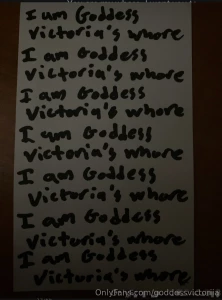 I am Goddess
Victoria's whore
I am Goddess
Victoria's whore
I am Goddess
Victoria's whore
I am Goddess
Victoria's whore
I am Goddess
Victoria's whore
I am Goddess
Victoria's whore
I am Goddess
Victoria's whore
OnlyFans.com/goddessvictoria